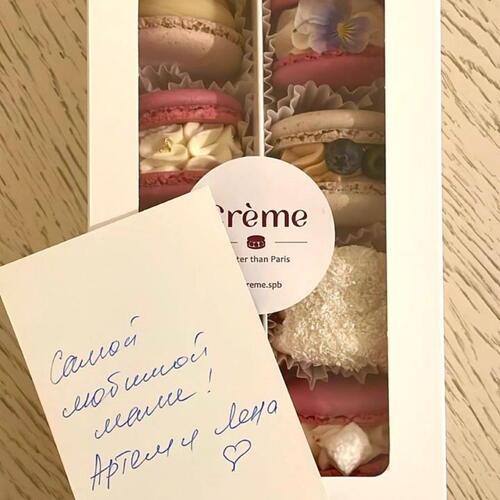 Crème
ter than Paris
reme.spb
Самой
любимой
маме!
Артем и Лена